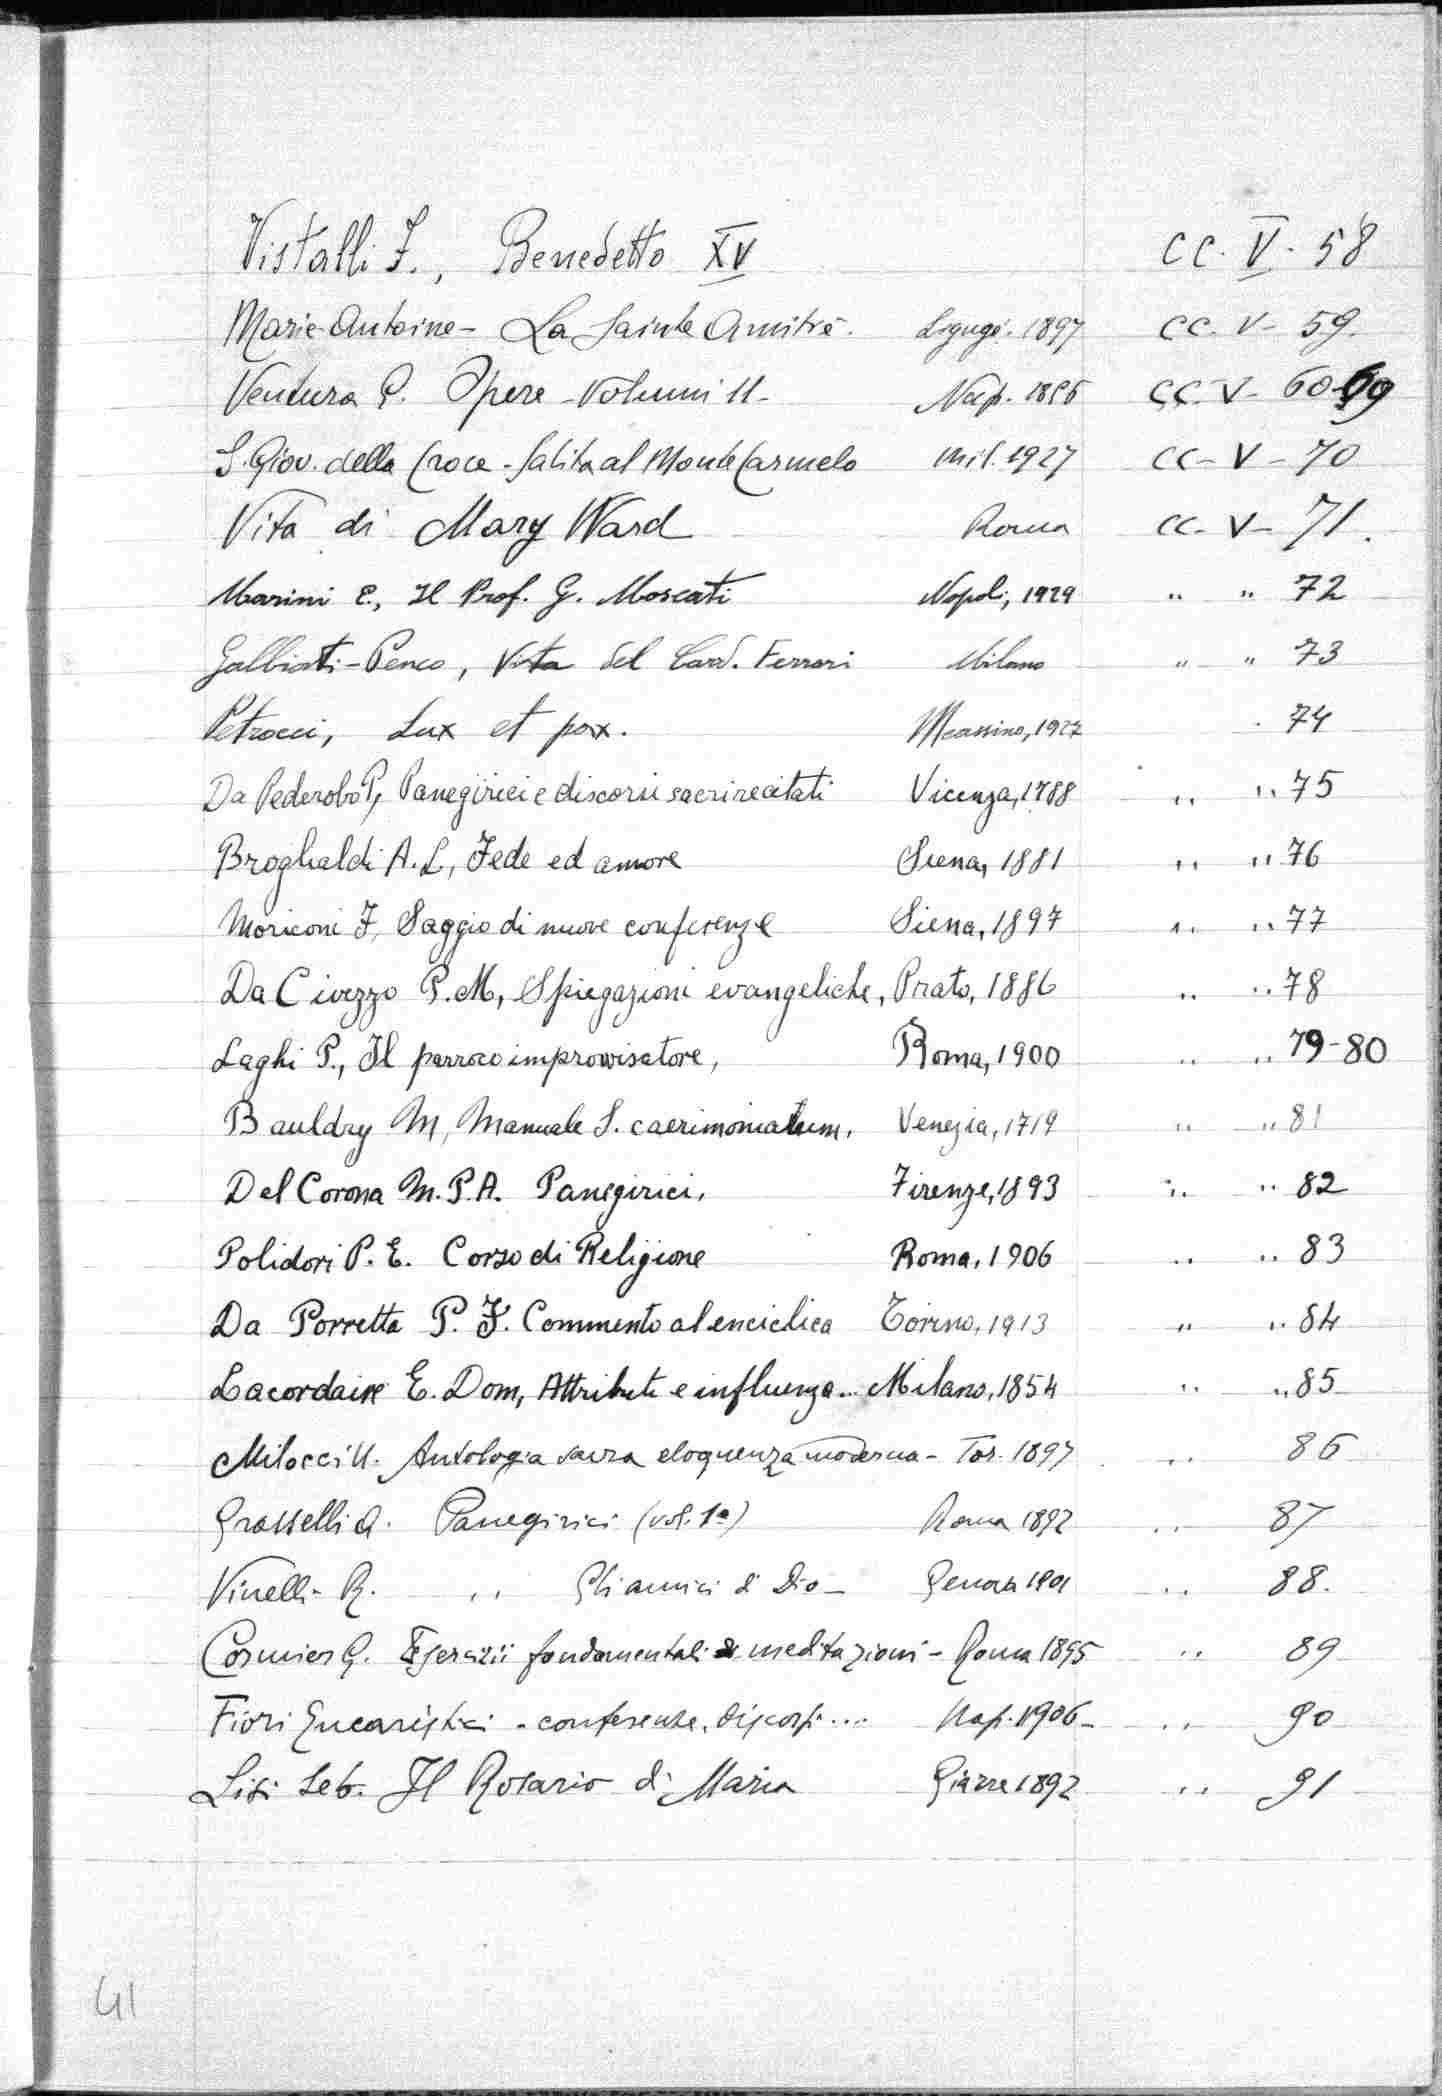 Vistalli F., Benedetto XV CC. V. 58
Marie-Antoine - La Sainte Amitié. Ligugé. 1897 CC. V - 59.
Ventura G. Opere - Volumi 11 - Nap. 1856 CC. V - 60-69
S. Giov. della Croce - Salita al Monte Carmelo Mil. 1927 CC - V - 70
Vita di Mary Ward Roma CC. V - 71.
Marini E., Il Prof. G. Moscati Napoli, 1929 " " 72
Galbiati-Penco, Vita del Card. Ferrari Milano " " 73
Petrocci, Lux et pax. Mcassino, 1927 . 74
Da Pederoba P., Panegirici e discorsi sacri recitati Vicenza, 1788 " " 75
Brogialdi A. L., Fede ed amore Siena, 1881 " " 76
Moriconi F, Saggio di nuove conferenze Siena, 1897 " " 77
Da Civezzo P. M, Spiegazioni evangeliche, Prato, 1886 " " 78
Laghi P., Il parroco improvvisatore, Roma, 1900 " " 79-80
Bauldry M, Manuale S. caerimonialum, Venezia, 1719 " " 81
Del Corona M. P. A. Panegirici, Firenze, 1893 " " 82
Polidori P. E. Corso di Religione Roma, 1906 " " 83
Da Porretta P. F. Commento al enciclica Torino, 1913 " " 84
Lacordaire E. Dom, Attributi e influenza... Milano, 1854 " " 85
Milocci U. Antologia sacra eloquenza moderna - Tor. 1897 " 86
Grasselli A. Panegirici (vol. 1º) Roma 1892 " 87
Vinelli R. " Gli amici di Dio - Genova 1901 " 88.
Cormier G. Esercizii fondamentali di meditazioni - Roma 1895 " 89
Fiori Eucaristici - conferenze, discorsi ... Nap. 1906 - " 90
Lisi Seb. Il Rosario di Maria Giarre 1892 " 91
41